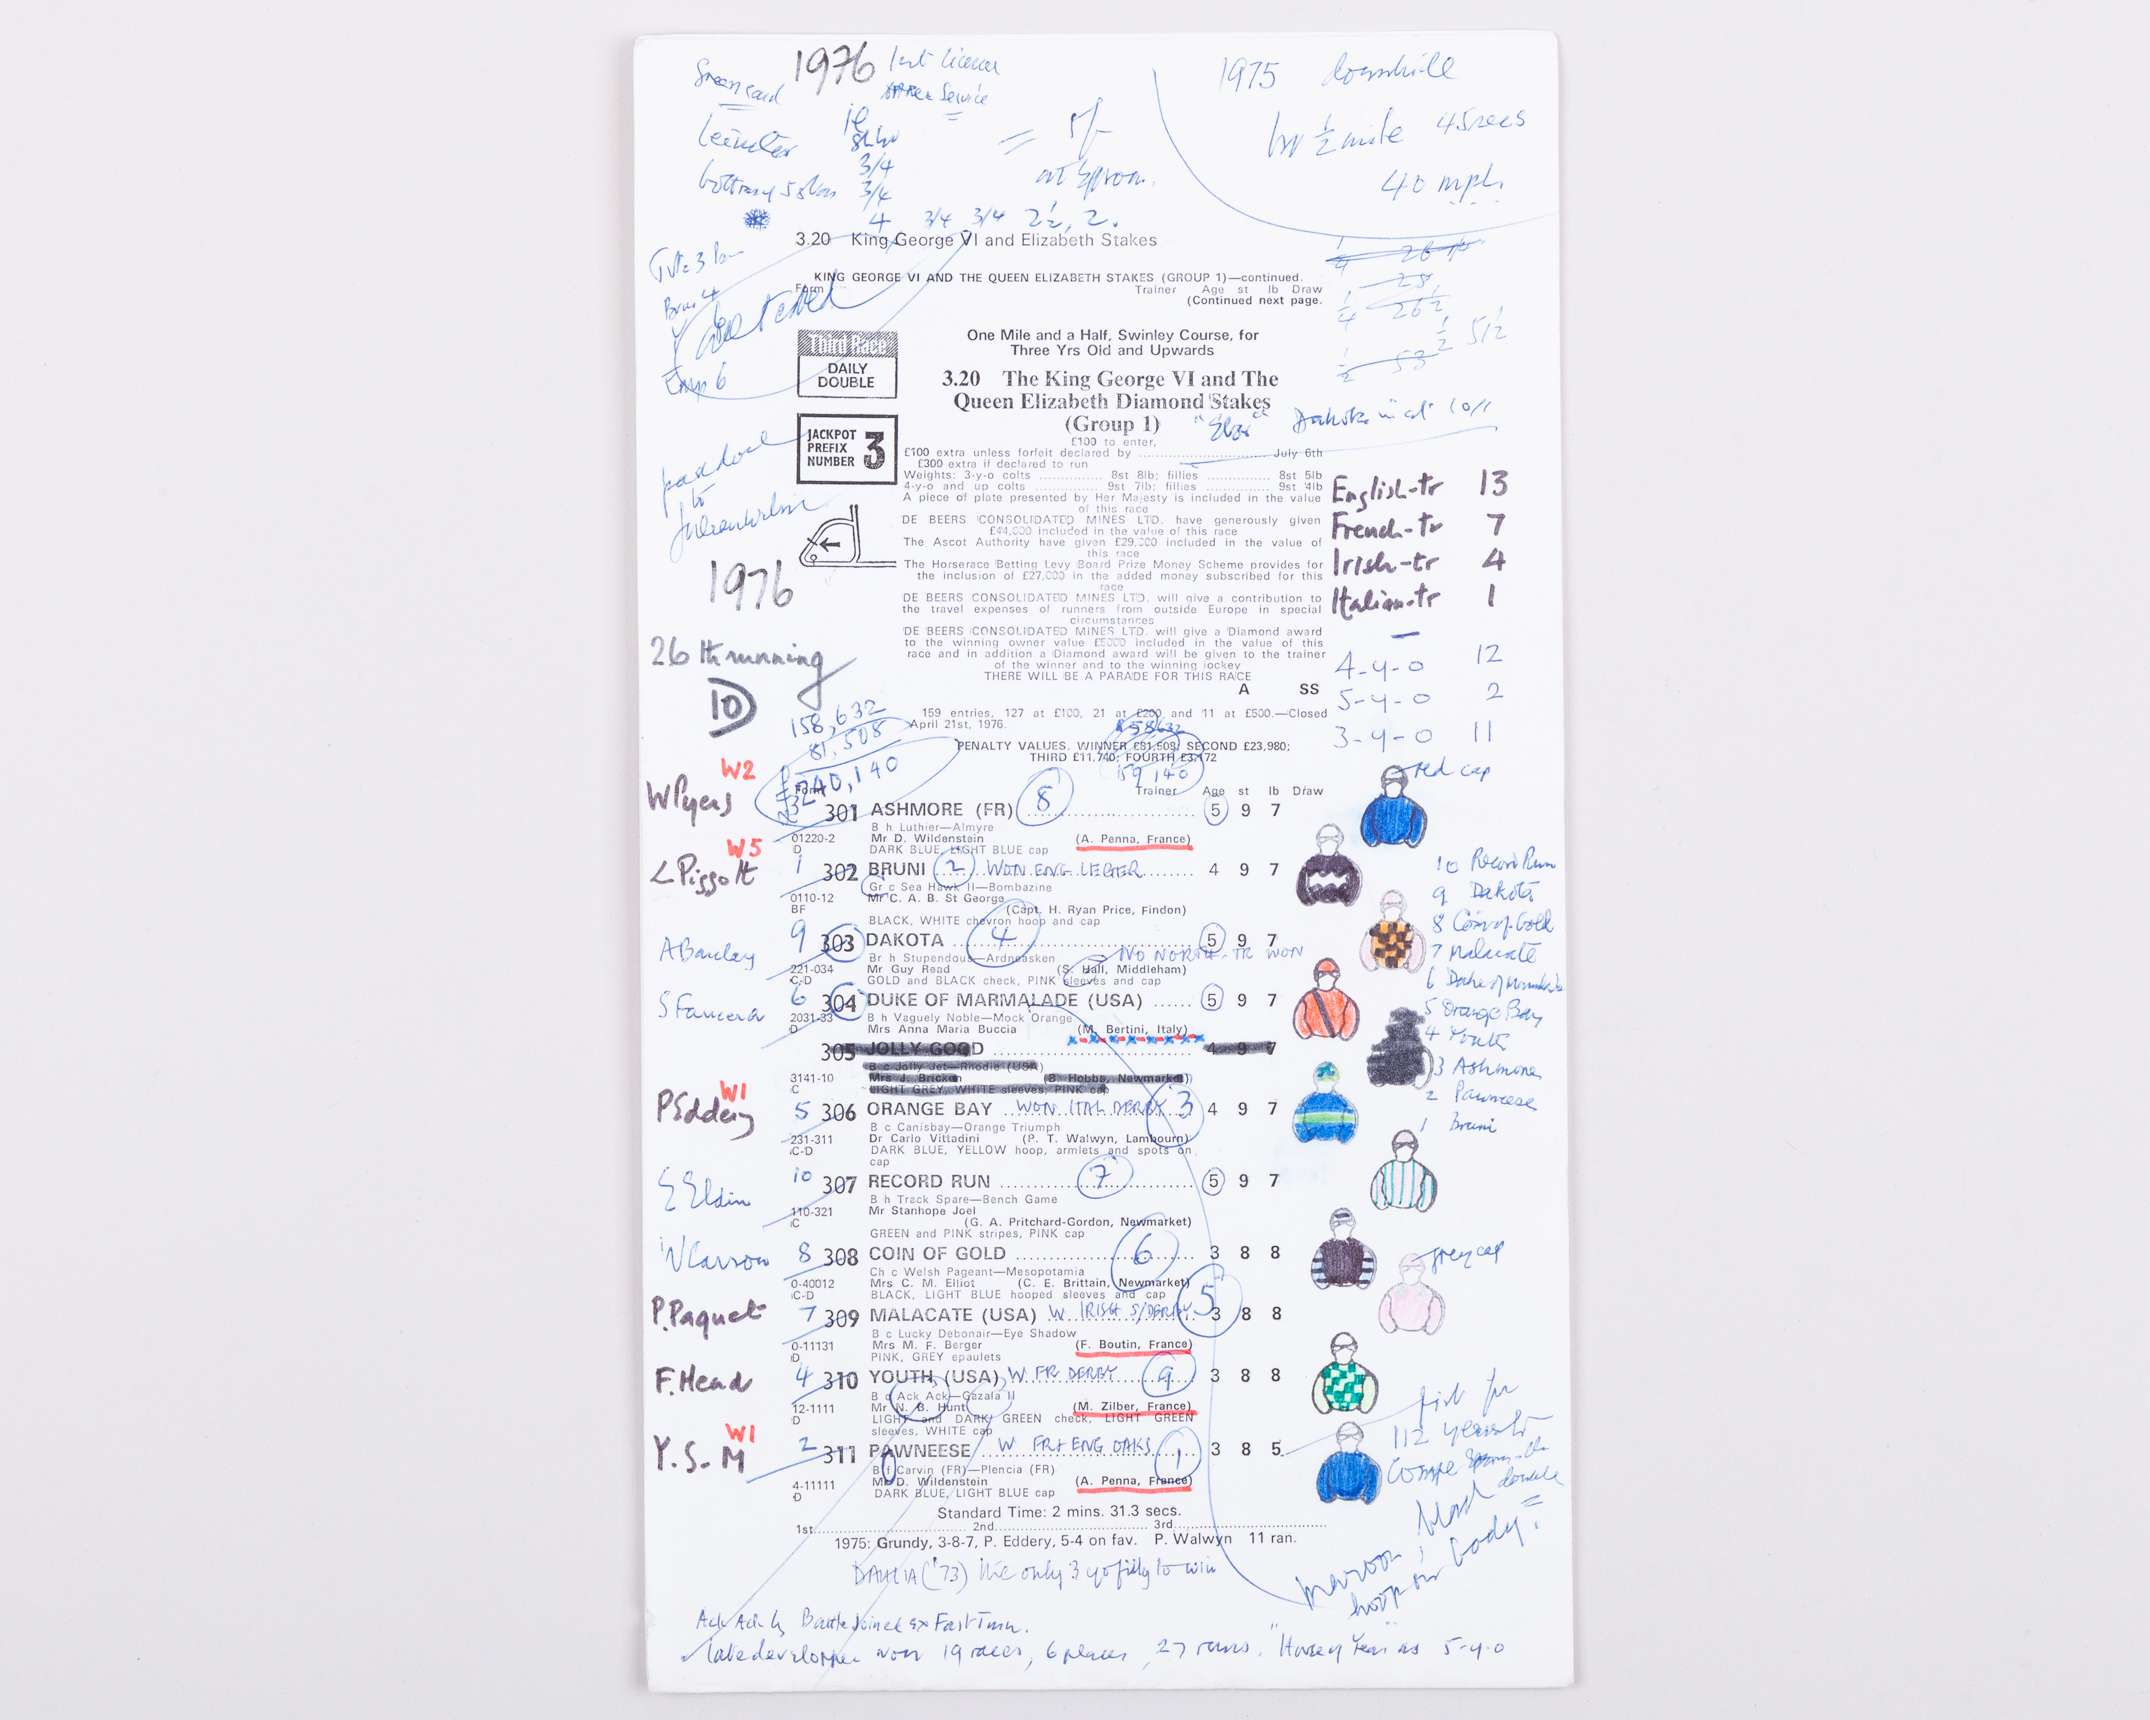 1976
1975
1/2 mile 45secs
40 mph
3/4
3/4
4 3/4 3/4 2½, 2.
3.20 King George VI and Elizabeth Stakes
KING GEORGE VI AND THE QUEEN ELIZABETH STAKES (GROUP 1)—continued.
Form Trainer Age st lb Draw
(Continued next page.
Third Race
DAILY
DOUBLE
One Mile and a Half, Swinley Course, for
Three Yrs Old and Upwards
3.20 The King George VI and The
Queen Elizabeth Diamond Stakes
(Group 1)
JACKPOT
PREFIX
NUMBER 3
£100 to enter,
£100 extra unless forfeit declared by July 6th
£300 extra if declared to run
Weights: 3-y-o colts 8st 8lb; fillies 8st 5lb
4-y-o and up colts 9st 7lb; fillies 9st 4lb
A piece of plate presented by Her Majesty is included in the value
of this race
DE BEERS CONSOLIDATED MINES LTD. have generously given
£44,000 included in the value of this race
The Ascot Authority have given £29,000 included in the value of
this race
The Horserace Betting Levy Board Prize Money Scheme provides for
the inclusion of £27,000 in the added money subscribed for this
race
DE BEERS CONSOLIDATED MINES LTD. will give a contribution to
the travel expenses of runners from outside Europe in special
circumstances
DE BEERS CONSOLIDATED MINES LTD. will give a Diamond award
to the winning owner value £5000 included in the value of this
race and in addition a Diamond award will be given to the trainer
of the winner and to the winning jockey
THERE WILL BE A PARADE FOR THIS RACE
A SS
English-tr 13
French-tr 7
Irish-tr 4
Italian-tr 1
4-y-o 12
5-y-o 2
3-y-o 11
1976
26th running
10
159 entries, 127 at £100, 21 at £200 and 11 at £500.—Closed
April 21st, 1976.
PENALTY VALUES. WINNER £81,508; SECOND £23,980;
THIRD £11,740; FOURTH £3,172
158,632
81,508
£240,140
Form Trainer Age st lb Draw
W Pyers W2 301 ASHMORE (FR) 8 5 9 7 red cap
B h Luthier—Almyre
01220-2 Mr D. Wildenstein (A. Penna, France)
D DARK BLUE, LIGHT BLUE cap
L Piggott W5 1 302 BRUNI 2 WON ENG LEGER 4 9 7
Gr c Sea Hawk II—Bombazine
0110-12 Mr C. A. B. St George
BF (Capt. H. Ryan Price, Findon)
BLACK, WHITE chevron hoop and cap
A Barclay 9 303 DAKOTA 4 5 9 7
Br h Stupendous—Ardneasken NO NORTH-TR WON
221-034 Mr Guy Read (S. Hall, Middleham)
C-D GOLD and BLACK check, PINK sleeves and cap
6 304 DUKE OF MARMALADE (USA) 5 9 7
B h Vaguely Noble—Mock Orange
2031-33 Mrs Anna Maria Buccia (M. Bertini, Italy)
D
305 JOLLY GOOD 4 9 7
B c Jolly Jet—Rhodie (USA)
3141-10 Mrs J. Bricken B. Hobbs, Newmarket)
C LIGHT GREY, WHITE sleeves, PINK cap
P Eddery W1 5 306 ORANGE BAY WON ITAL DERBY 3 4 9 7
B c Canisbay—Orange Triumph
231-311 Dr Carlo Vittadini (P. T. Walwyn, Lambourn)
C-D DARK BLUE, YELLOW hoop, armlets and spots on
cap
E Eldin 10 307 RECORD RUN 7 5 9 7
B h Track Spare—Bench Game
110-321 Mr Stanhope Joel
C (G. A. Pritchard-Gordon, Newmarket)
GREEN and PINK stripes, PINK cap
W Carson 8 308 COIN OF GOLD 6 3 8 8
Ch c Welsh Pageant—Mesopotamia
0-40012 Mrs C. M. Elliot (C. E. Brittain, Newmarket)
C-D BLACK, LIGHT BLUE hooped sleeves and cap
P. Paquet 7 309 MALACATE (USA) W IRISH S/DERBY 5 3 8 8 grey cap
B c Lucky Debonair—Eye Shadow
0-11131 Mrs M. F. Berger (F. Boutin, France)
D PINK, GREY epaulets
F. Head 4 310 YOUTH (USA) W FR DERBY 9 3 8 8
B c Ack Ack—Gazala II
12-1111 Mr N. B. Hunt (M. Zilber, France)
D LIGHT and DARK GREEN check, LIGHT GREEN
sleeves, WHITE cap
Y. S. M W1 2 311 PAWNEESE W FR + ENG OAKS 1 3 8 5
B f Carvin (FR)—Plencia (FR)
4-11111 Mr D. Wildenstein (A. Penna, France)
D DARK BLUE, LIGHT BLUE cap
10 Record Run
9 Dakota
8 Coin of Gold
7 Malacate
6 Duke of Marmalade
5 Orange Bay
4 Youth
3 Ashmore
2 Pawneese
1 Bruni
Standard Time: 2 mins. 31.3 secs.
1st 2nd 3rd
1975: Grundy, 3-8-7, P. Eddery, 5-4 on fav. P. Walwyn 11 ran.
DAHLIA ('73) the only 3 yo filly to win
Ack Ack by Battle Joined ex Fast Turn.
late developer won 19 races, 6 places, 27 runs. "Horse of Year" as 5-y-o